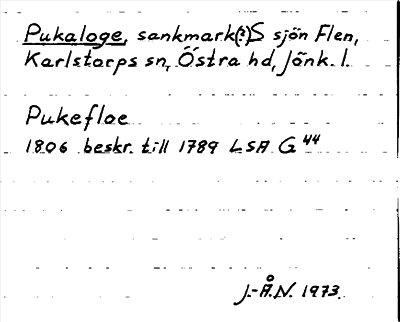 Pukaloge, sankmark(?) S sjön Flen,
Karlstorps sn, Östra hd, Jönk. l.
Pukefloe
1806 beskr. till 1789 LSA G 44
J.-Å.N. 1973.